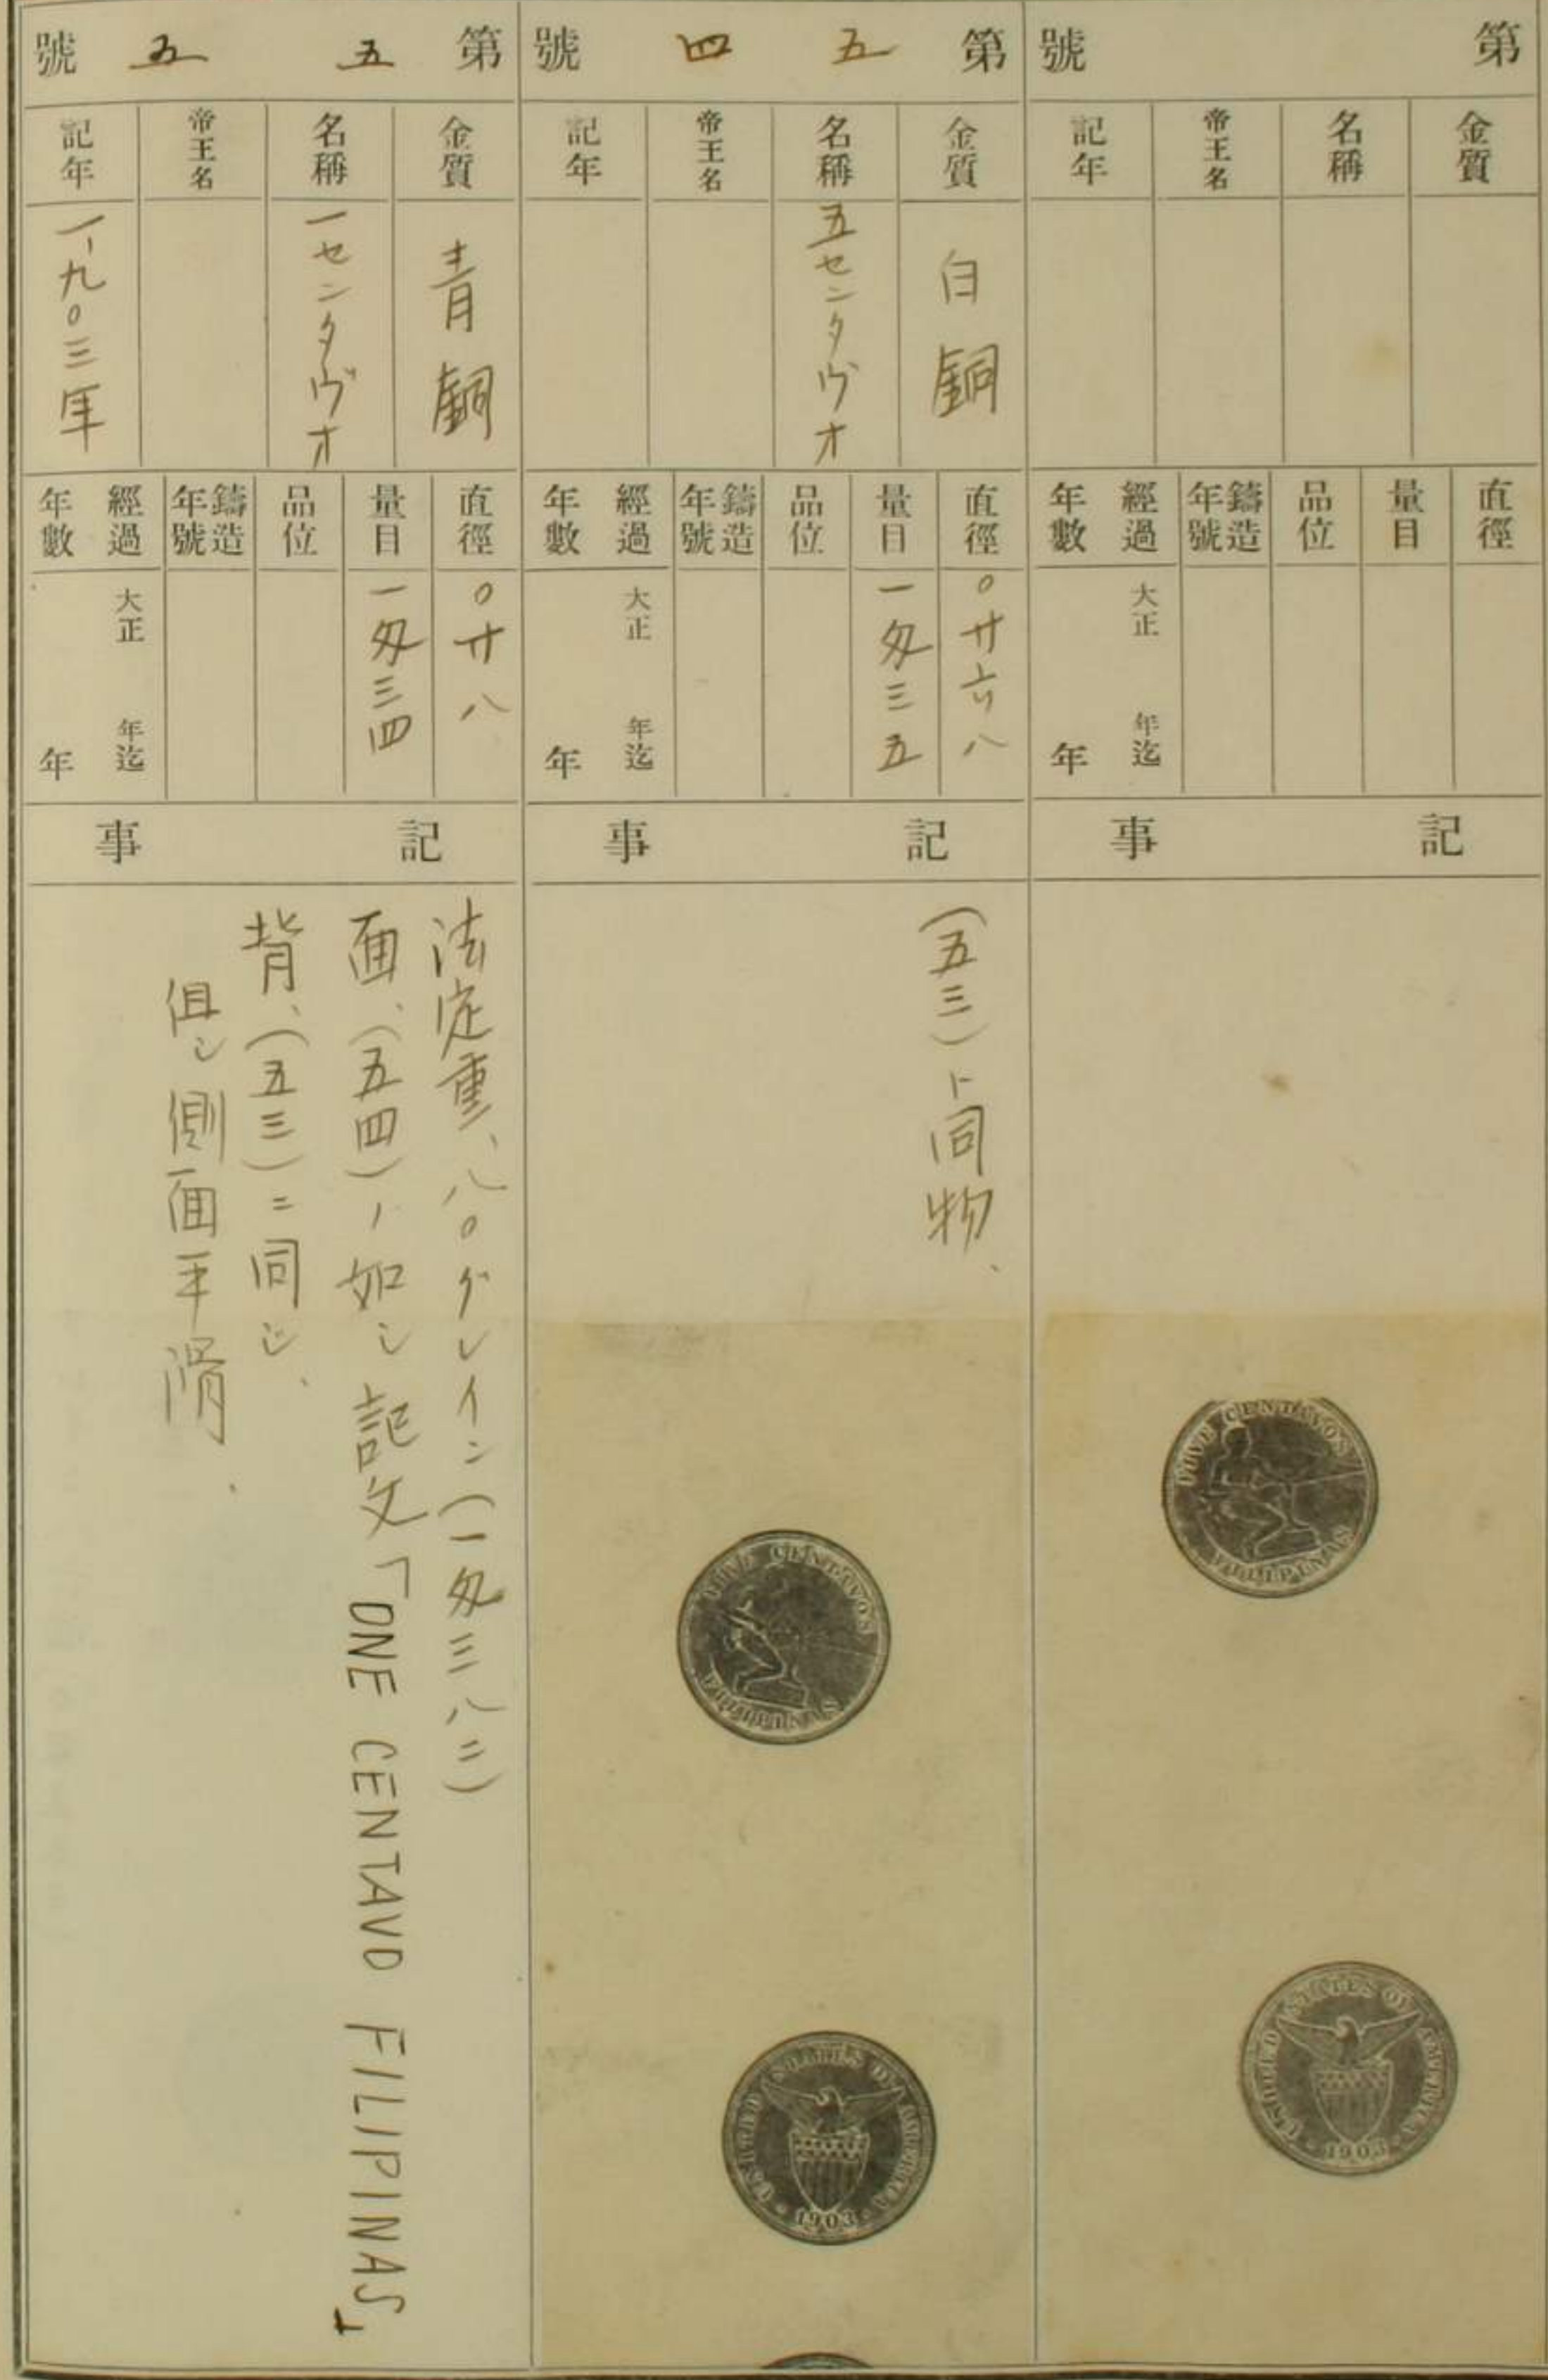 第 號
金質
名稱
帝王名
記年
直徑
量目
品位
鑄造年號
經過年數
大正 年迄
年
記事
FIVE CENTAVOS
FILIPINAS
UNITED STATES OF AMERICA
1903
第五四號
金質 白銅
名稱 五センタヴオ
帝王名
記年
直徑 〇廿六八
量目 一匁三五
品位
鑄造年號
經過年數
大正 年迄
年
記事
(五三)ト同物、
FIVE CENTAVOS
FILIPINAS
UNITED STATES OF AMERICA
1903
第五五號
金質 青銅
名稱 一センタヴオ
帝王名
記年 一、九〇三年
直徑 〇廿八
量目 一匁三四
品位
鑄造年號
經過年數
大正 年迄
年
記事
法定重、八〇グレイン(一匁三八二)
面、(五四)ノ如シ記文「ONE CENTAVO FILIPINAS」
背、(五三)ニ同ジ、
但シ側面平滑、